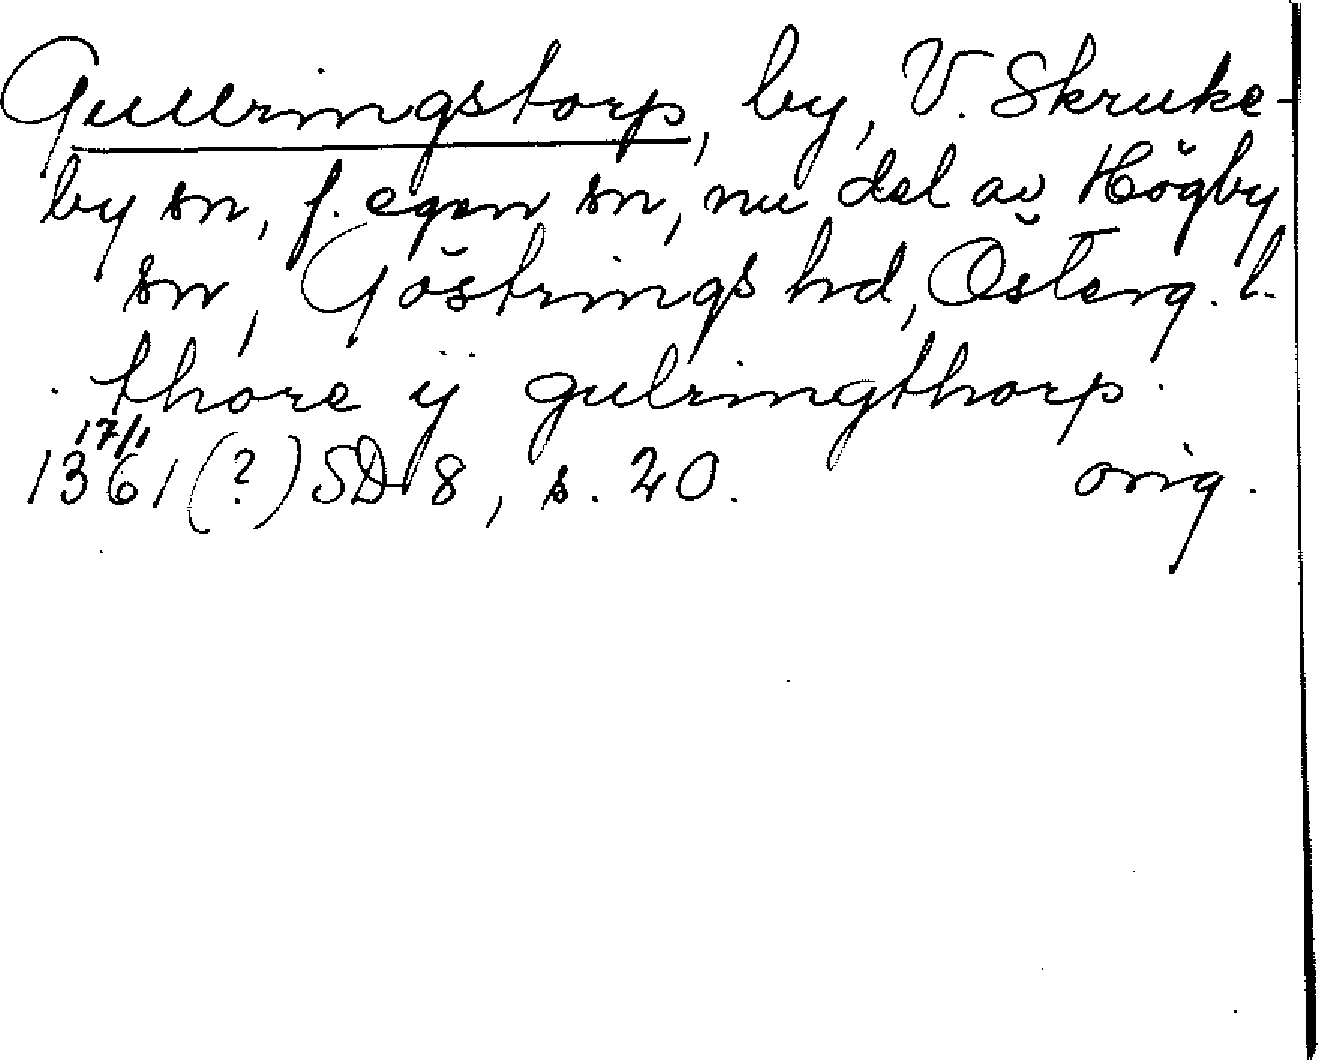 Gullringstorp, by, V. Skruke-
by sn, f. egen sn, nu del av Högby
sn, Göstrings hd, Österg. l.
thore ij gulringthorp.
17/1
1361(?) SD 8, s. 20. orig.